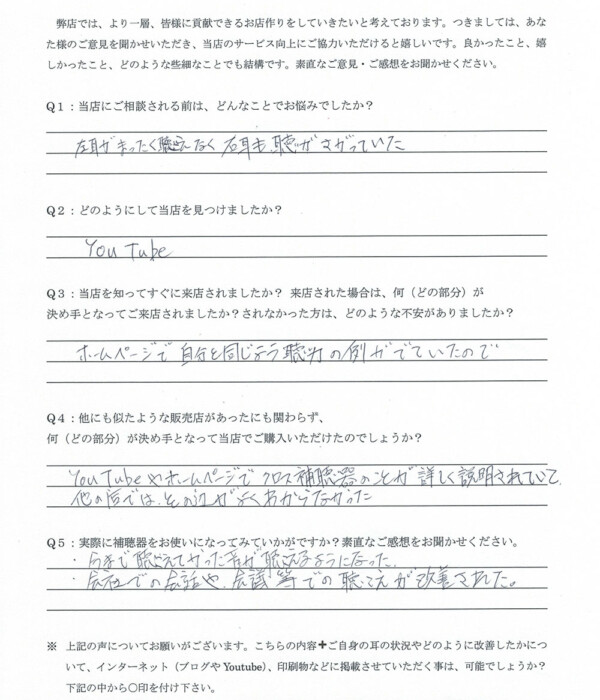 弊店では、より一層、皆様に貢献できるお店作りをしていきたいと考えております。つきましては、あな
た様のご意見を聞かせいただき、当店のサービス向上にご協力いただけると嬉しいです。良かったこと、嬉
しかったこと、どのような些細なことでも結構です。素直なご意見・ご感想をお聞かせください。
Q1：当店にご相談される前は、どんなことでお悩みでしたか？
左耳がまったく聴えなく 右耳も聴がさがっていた
Q2：どのようにして当店を見つけましたか？
YouTube
Q3：当店を知ってすぐに来店されましたか？ 来店された場合は、何（どの部分）が
決め手となってご来店されましたか？されなかった方は、どのような不安がありましたか？
ホームページで 自分と同じよう聴力の例がでていたので
Q4：他にも似たような販売店があったにも関わらず、
何（どの部分）が決め手となって当店でご購入いただけたのでしょうか？
YouTubeやホームページで クロス補聴器のことが詳しく説明されていて、
他の店では、その辺がよくわからなかった
Q5：実際に補聴器をお使いになってみていかがですか？素直なご感想をお聞かせください。
・今まで聴えてなかった音が聴えるようになった。
・会社での会話や、会議等での聴こえが改善された。
※ 上記の声についてお願いがございます。こちらの内容＋ご自身の耳の状況やどのように改善したかにつ
いて、インターネット（ブログやYoutube）、印刷物などに掲載させていただく事は、可能でしょうか？
下記の中から〇印を付け下さい。